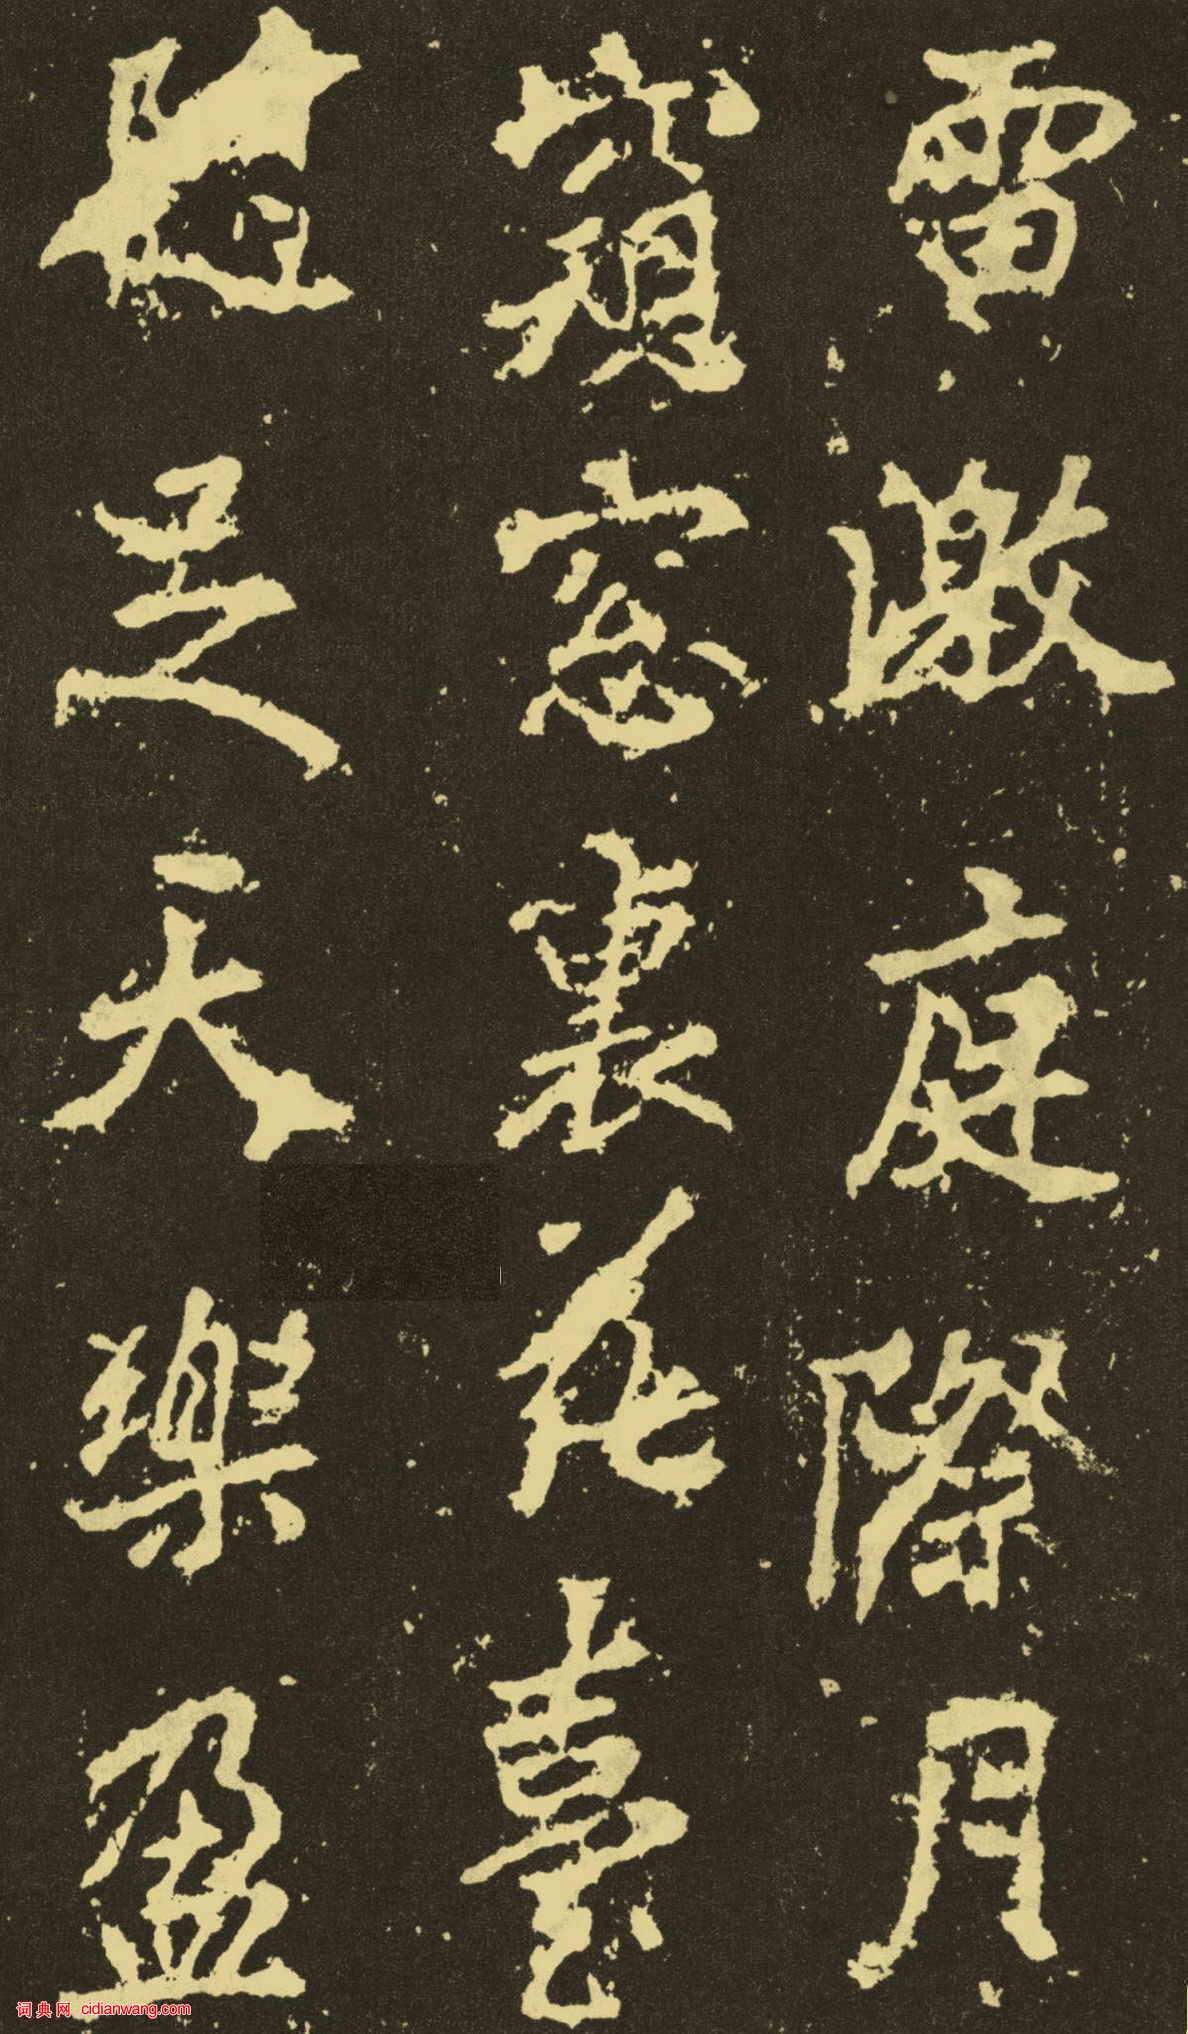 雷激庭際月
窺窓裏花臺
隨足天樂盈
词典网 cidianwang.com